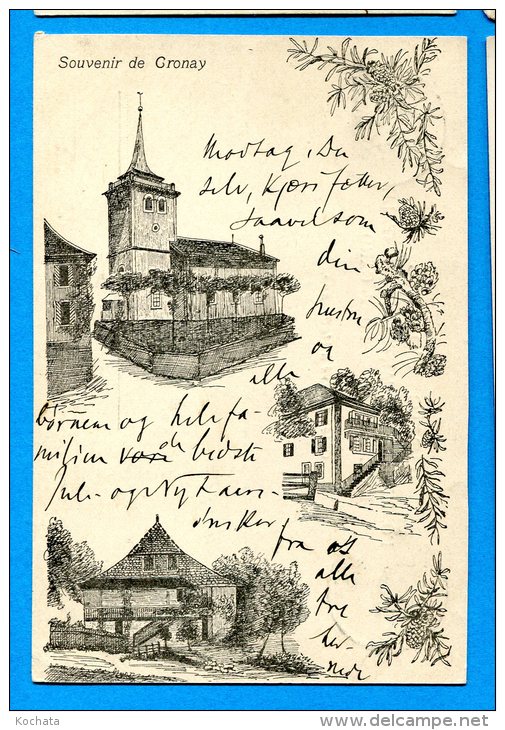 Souvenir de Cronay
Modtag, Du
selv, Kjære fætter,
saavel som
din
hustru
og
alle
børnene og hele fa-
milien de bedste
Jule- og Nytaars-
ønsker
fra os
alle
tre
her-
nede
Kochata